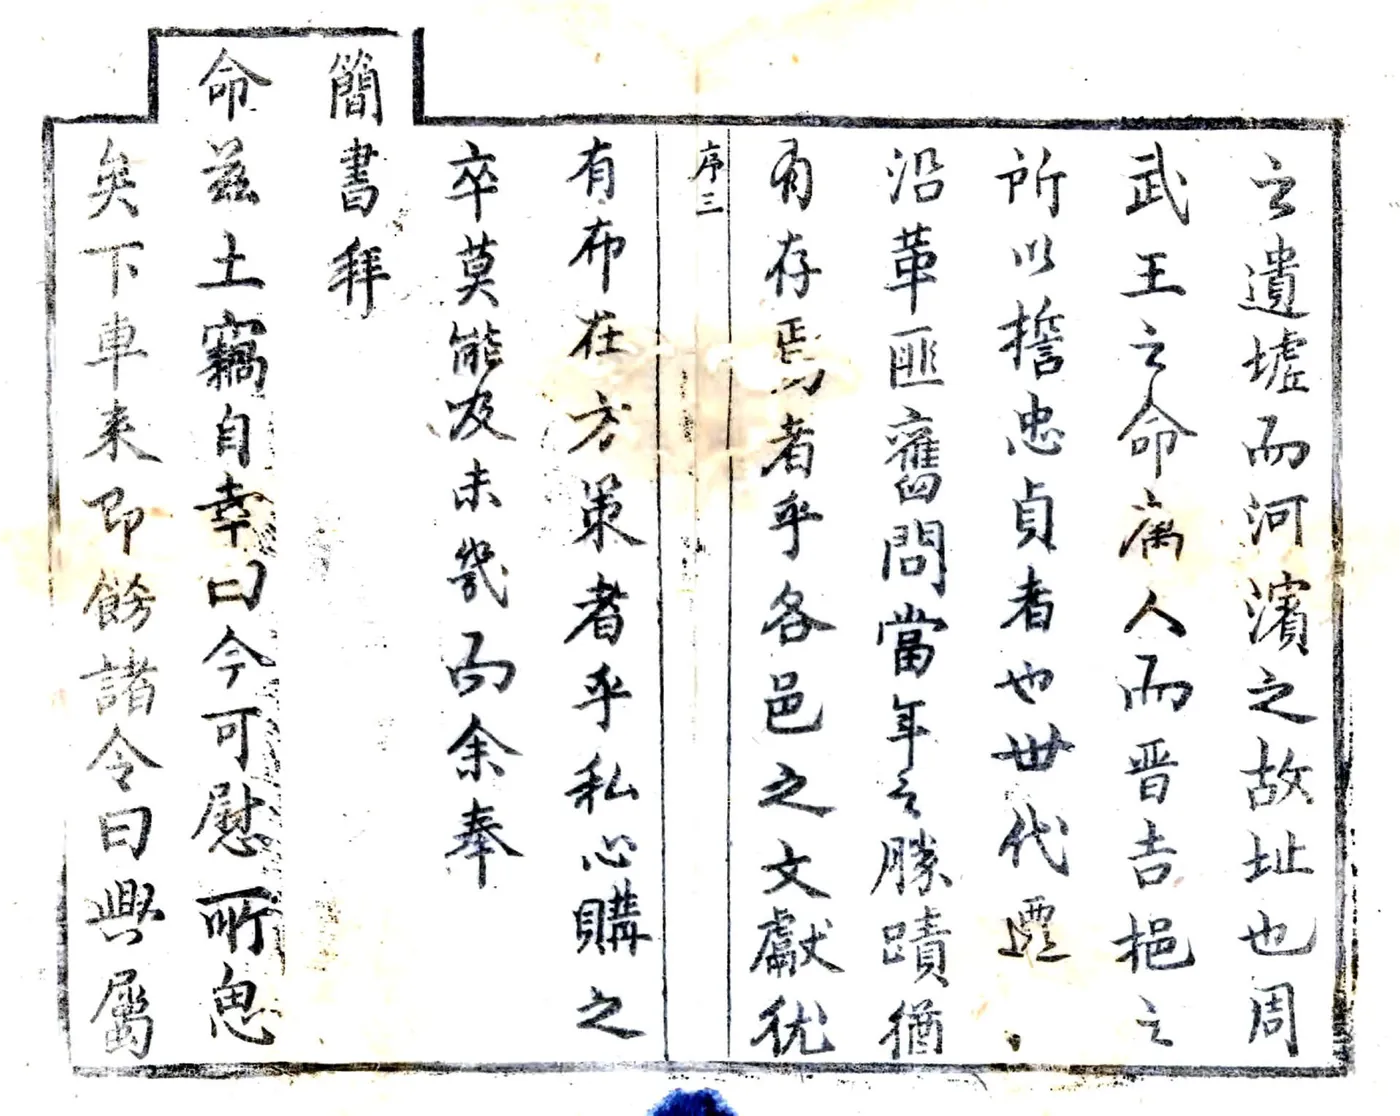 之遺墟而河濱之故址也周
武王之命
人而晋吉挹之
所以擔忠貞者也世代遷
沿革匪舊問當年之勝蹟猶
有存焉者乎各邑之文獻猶
序三
有布在方策者乎私心購之
卒莫能及未幾而余奉
簡書拜
命茲土竊自幸曰今可慰所思
矣下車來即飭諸令曰興屬